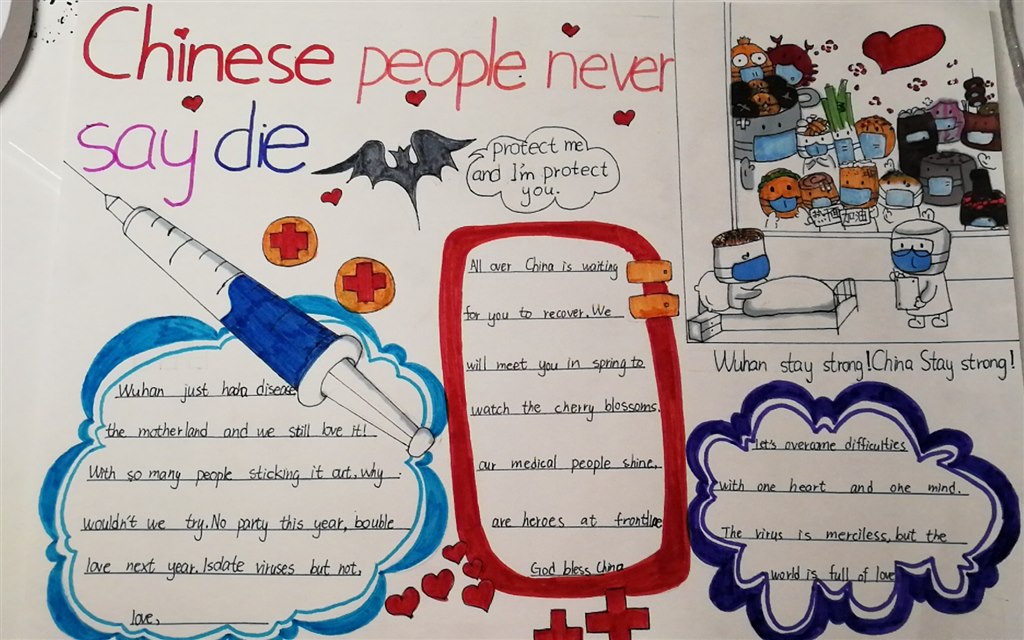 Chinese people never
say die
protect me
and I'm protect
you.
热干面加油
Wuhan stay strong! China Stay strong!
All over China is waiting
for you to recover. We
will meet you in spring to
watch the cherry blossoms.
our medical people shine.
are heroes at frontline
God bless China
Wuhan just hada disease
the motherland and we still love it!
With so many people sticking it out, why
wouldn't we try. No party this year, bouble
love next year. Isolate viruses but not,
love,
let's overcome difficulties
with one heart and one mind.
The virus is merciless, but the
world is full of love